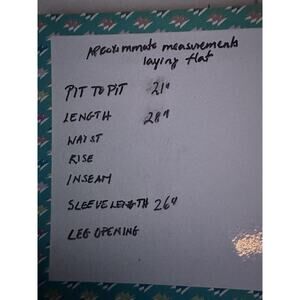 Approximmate measurements
laying flat
PIT TO PIT 21"
LENGTH 28"
WAIST
RISE
INSEAM
SLEEVE LENGTH 26"
LEG OPENING